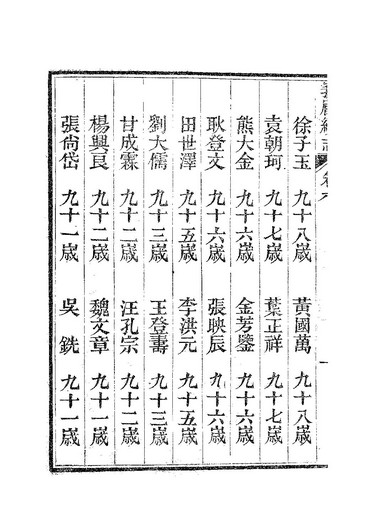 徐子玉 九十八歲 黃國萬 九十八歲
袁朝珂 九十七歲 葉正祥 九十七歲
熊大金 九十六歲 金芳鑒 九十六歲
耿登文 九十六歲 張映辰 九十六歲
田世澤 九十五歲 李洪元 九十五歲
劉大儒 九十三歲 王登壽 九十三歲
甘成霖 九十二歲 汪孔宗 九十二歲
楊興良 九十二歲 魏文章 九十一歲
張尙岱 九十一歲 吳銑 九十一歲